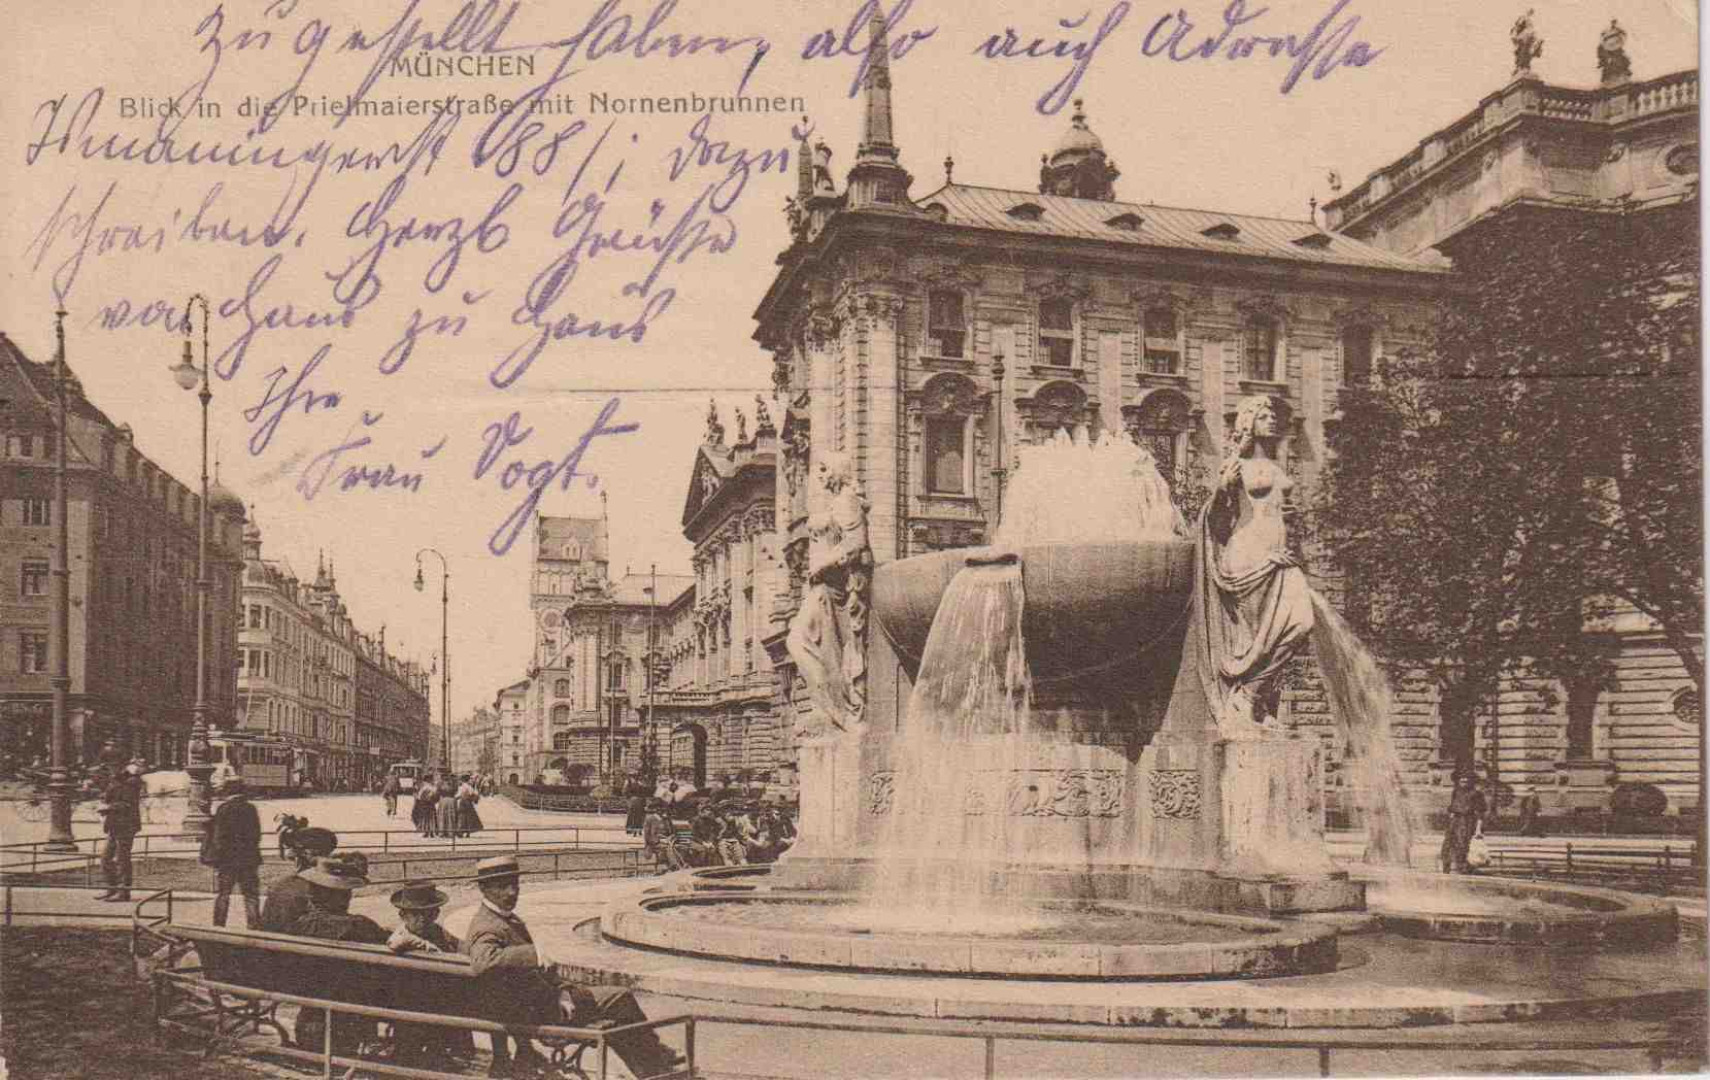 zugestellt haben, also auch Adresse
MÜNCHEN
Blick in die Prielmaierstraße mit Nornenbrunnen
Ismaningerst 188/; dazu
schreiben. Herzl Grüsse
von Haus zu Haus
Ihre
Frau Vogt.